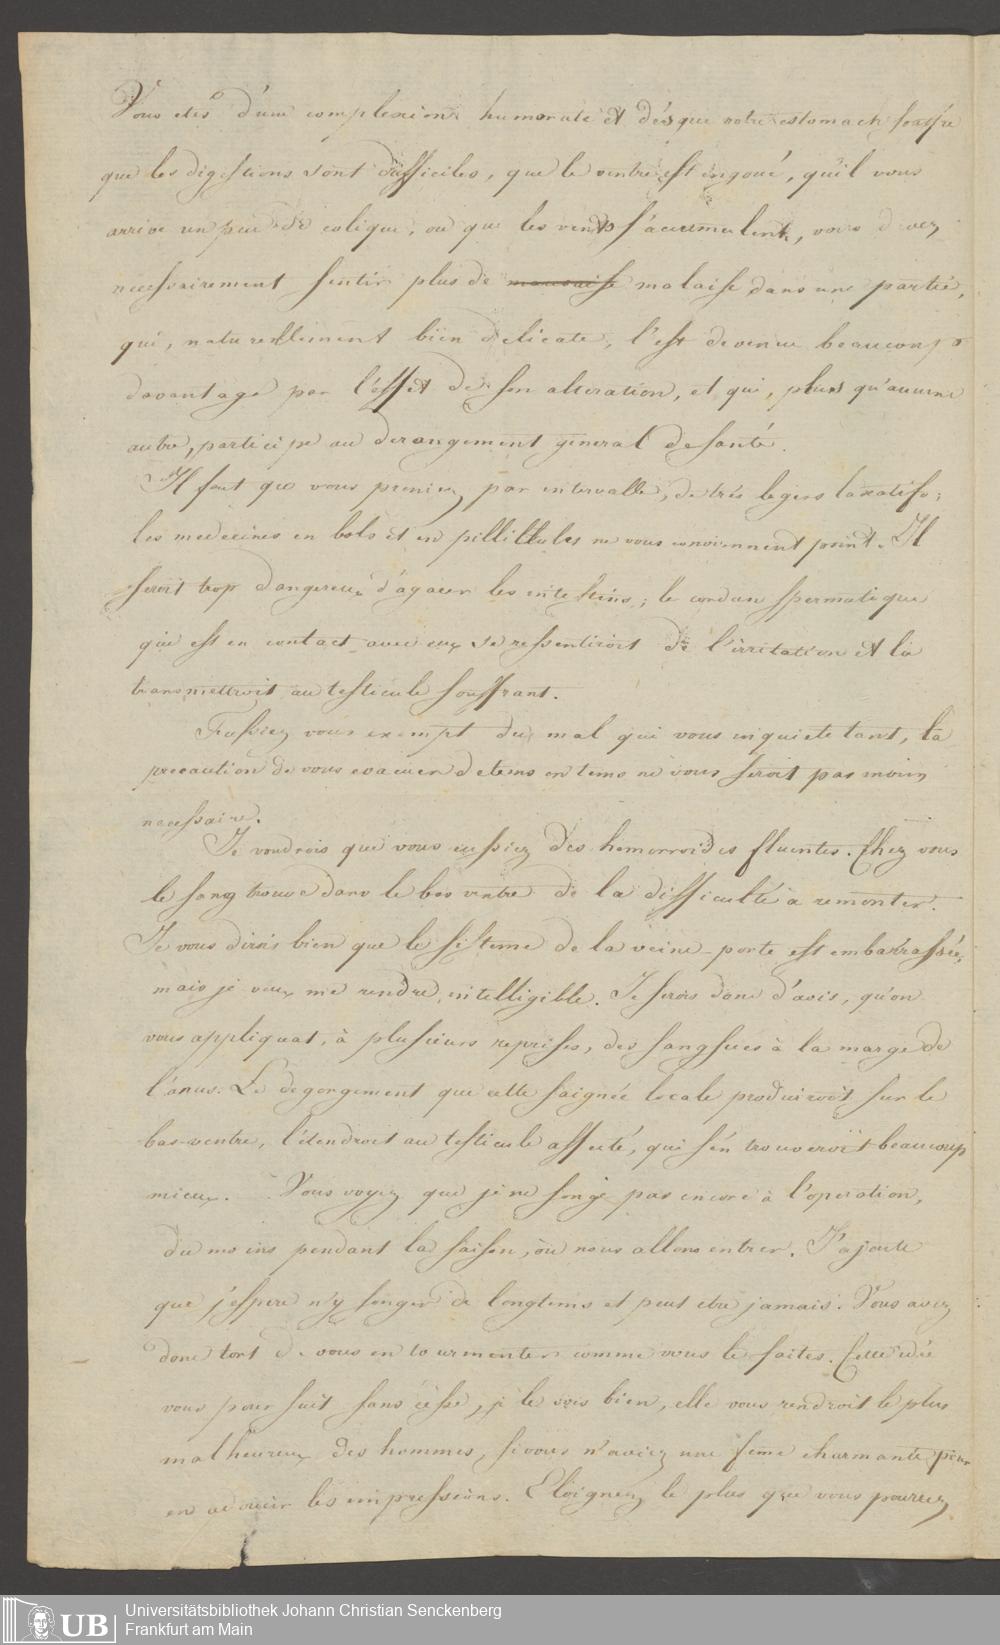 Vous etes d'une complexion humorale et dès que votre estomach souffre
que les digestions sont difficiles, que le ventre est engoué, qu'il vous
arrive un peu de colique, ou que les vents s'accumulent, vous devez
necessairement sentir plus de mauvaise malaise dans une partie,
qui, naturellement bien delicate, l'est devenue beaucoup
davantage par l'effet de son alteration, et qui, plus qu'aucune
autre, participe au derangement general de santé.
Il faut que vous preniez, par intervalle, de très legers laxatifs;
les medecines en bols et en pillules ne vous conviennent point. Il
seroit trop dangereux d'agacer les intestins; le cordon spermatique
qui est en contact avec eux se ressentiroit de l'irritation et la
transmettroit au testicule souffrant.
Fussiez vous exempt du mal qui vous inquiete tant, la
precaution de vous evacuer de tems en tems ne vous seroit pas moins
necessaire.
Je voudrois que vous eussiez des hemorroides fluentes. Chez vous
le sang trouve dans le bas ventre de la difficulté à remonter.
Je vous dirois bien que le sisteme de la veine-porte est embarrassée,
mais je veux me rendre intelligible. Je serois donc d'avis, qu'on
vous appliquat, à plusieurs reprises, des sangsues à la marge de
l'anus. Le degorgement que cette saignée locale produiroit sur le
bas-ventre, s'étendroit au testicule affecté, qui s'en trouveroit beaucoup
mieux. Vous voyez que je ne songe pas encore à l'operation,
du moins pendant la saison, où nous allons entrer. J'ajoute
que j'espere n'y songer de longtems et peut etre jamais. Vous avez
donc tort de vous en tourmenter comme vous le faites. Cette idée
vous poursuit sans cesse, je le vois bien, elle vous rendroit le plus
malheureux des hommes, si vous n'aviez une feme charmante pour
en adoucir les impressions. Eloignez le plus que vous pourrez
UB
Universitätsbibliothek Johann Christian Senckenberg
Frankfurt am Main